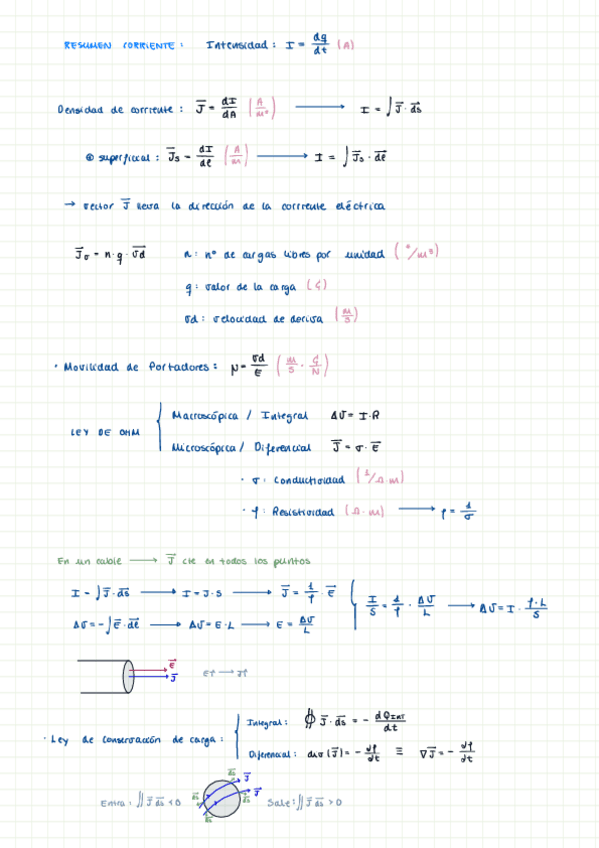 RESUMEN CORRIENTE: Intensidad: I = dq/dt (A)
Densidad de corriente: J⃗ = dI/dA (A/m²) → I = ∫ J⃗ · ds⃗
superficial: J⃗s = dI/dl (A/m) → I = ∫ J⃗s · dl⃗
→ vector J⃗ lleva la dirección de la corriente eléctrica
J⃗σ = n · q · v⃗d n: nº de cargas libres por unidad (º/m³)
q: valor de la carga (C)
vd: velocidad de deriva (m/s)
· Movilidad de Portadores: μ = vd/E (m/s · C/N)
LEY DE OHM
Macroscópica / Integral ΔV = I·R
Microscópica / Diferencial J⃗ = σ · E⃗
· σ: Conductividad (1/Ω·m)
· ρ: Resistividad (Ω·m) → ρ = 1/σ
En un cable → J⃗ cte en todos los puntos
I = ∫ J⃗ · ds⃗ → I = J · S → J⃗ = 1/ρ · E⃗
ΔV = -∫ E⃗ · dl⃗ → ΔV = E · L → E = ΔV/L
I/S = 1/ρ · ΔV/L → ΔV = I · ρ·L/S
E⃗
J⃗
E↑ → J↑
· Ley de conservación de carga:
Integral: ∯ J⃗ · ds⃗ = - dQINT/dt
Diferencial: div (J⃗) = - dρ/dt ≡ ∇J⃗ = - dρ/dt
Entra: ∬ J⃗ ds⃗ < 0
ds⃗ J⃗
ds⃗ J⃗
ds⃗
ds⃗
Sale: ∬ J⃗ ds⃗ > 0